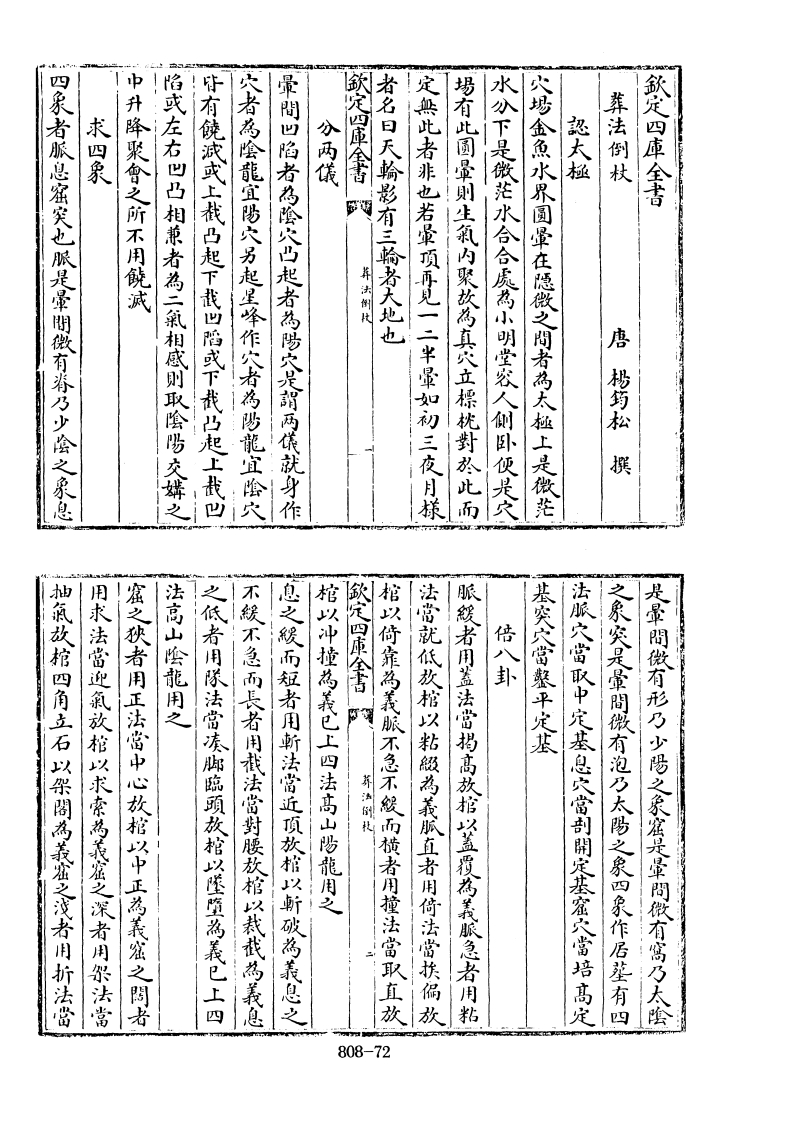 欽定四庫全書
葬法倒杖　唐　楊筠松　撰
認太極
穴場金魚水界圓暈在隱微之間者為太極上是微茫
水分下是微茫水合合處為小明堂容人側卧便是穴
場有此圓暈則生氣內聚故為真穴立標枕對於此而
定無此者非也若暈頂再見一二半暈如初三夜月樣
者名曰天輪影有三輪者大地也
欽定四庫全書　葬法倒杖　一
分兩儀
暈間凹陷者為陰穴凸起者為陽穴是謂兩儀就身作
穴者為陰龍宜陽穴另起星峰作穴者為陽龍宜陰穴
皆有饒減或上截凸起下截凹陷或下截凸起上截凹
陷或左右凹凸相兼者為二氣相感則取陰陽交媾之
中升降聚會之所不用饒減
求四象
四象者脈息窟突也脈是暈間微有脊乃少陰之象息
是暈間微有形乃少陽之象窟是暈間微有窩乃太陰
之象突是暈間微有泡乃太陽之象四象作居塟有四
法脈穴當取中定基息穴當剖開定基窟穴當培高定
基突穴當鑿平定基
倍八卦
脈緩者用蓋法當揭高放棺以蓋覆為義脈急者用粘
法當就低放棺以粘綴為義脈直者用倚法當挨偏放
棺以倚靠為義脈不急不緩而橫者用撞法當取直放
欽定四庫全書　葬法倒杖　二
棺以沖撞為義已上四法高山陽龍用之
息之緩而短者用斬法當近頂放棺以斬破為義息之
不緩不急而長者用截法當對腰放棺以裁截為義息
之低者用隊法當湊脚臨頭放棺以墜墮為義已上四
法高山陰龍用之
窟之狹者用正法當中心放棺以中正為義窟之闊者
用求法當迎氣放棺以求索為義窟之深者用架法當
抽氣放棺四角立石以架閣為義窟之淺者用折法當
808-72